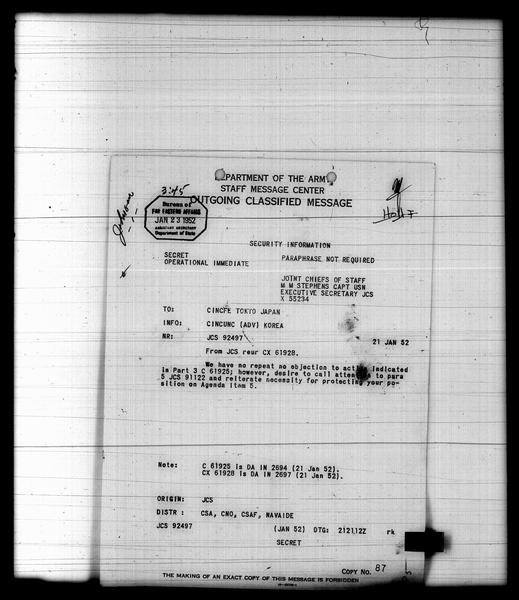 3:45
Johnson
Bureau of
FAR EASTERN AFFAIRS
JAN 23 1952
ASSISTANT SECRETARY
Department of State
DEPARTMENT OF THE ARMY
STAFF MESSAGE CENTER
OUTGOING CLASSIFIED MESSAGE
SECURITY INFORMATION
SECRET
OPERATIONAL IMMEDIATE
PARAPHRASE NOT REQUIRED
JOINT CHIEFS OF STAFF
M M STEPHENS CAPT USN
EXECUTIVE SECRETARY JCS
X 55234
TO: CINCFE TOKYO JAPAN
INFO: CINCUNC (ADV) KOREA
NR: JCS 92497 21 JAN 52
From JCS reur CX 61928.
We have no repeat no objection to action indicated
in Part 3 C 61925; however, desire to call attention to para
5 JCS 91122 and reiterate necessity for protecting your po-
sition on Agenda Item 5.
Note: C 61925 is DA IN 2694 (21 Jan 52).
CX 61928 is DA IN 2697 (21 Jan 52).
ORIGIN: JCS
DISTR: CSA, CNO, CSAF, NAVAIDE
JCS 92497 (JAN 52) DTG: 212112Z rk
SECRET
COPY NO. 87
THE MAKING OF AN EXACT COPY OF THIS MESSAGE IS FORBIDDEN